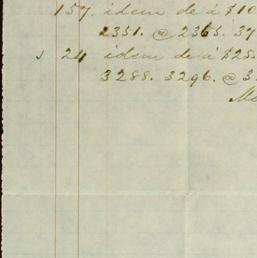 157. idem de á $10
2351. @ 2365. 37
24 idem de á $25.
3288. 3296. @ 3